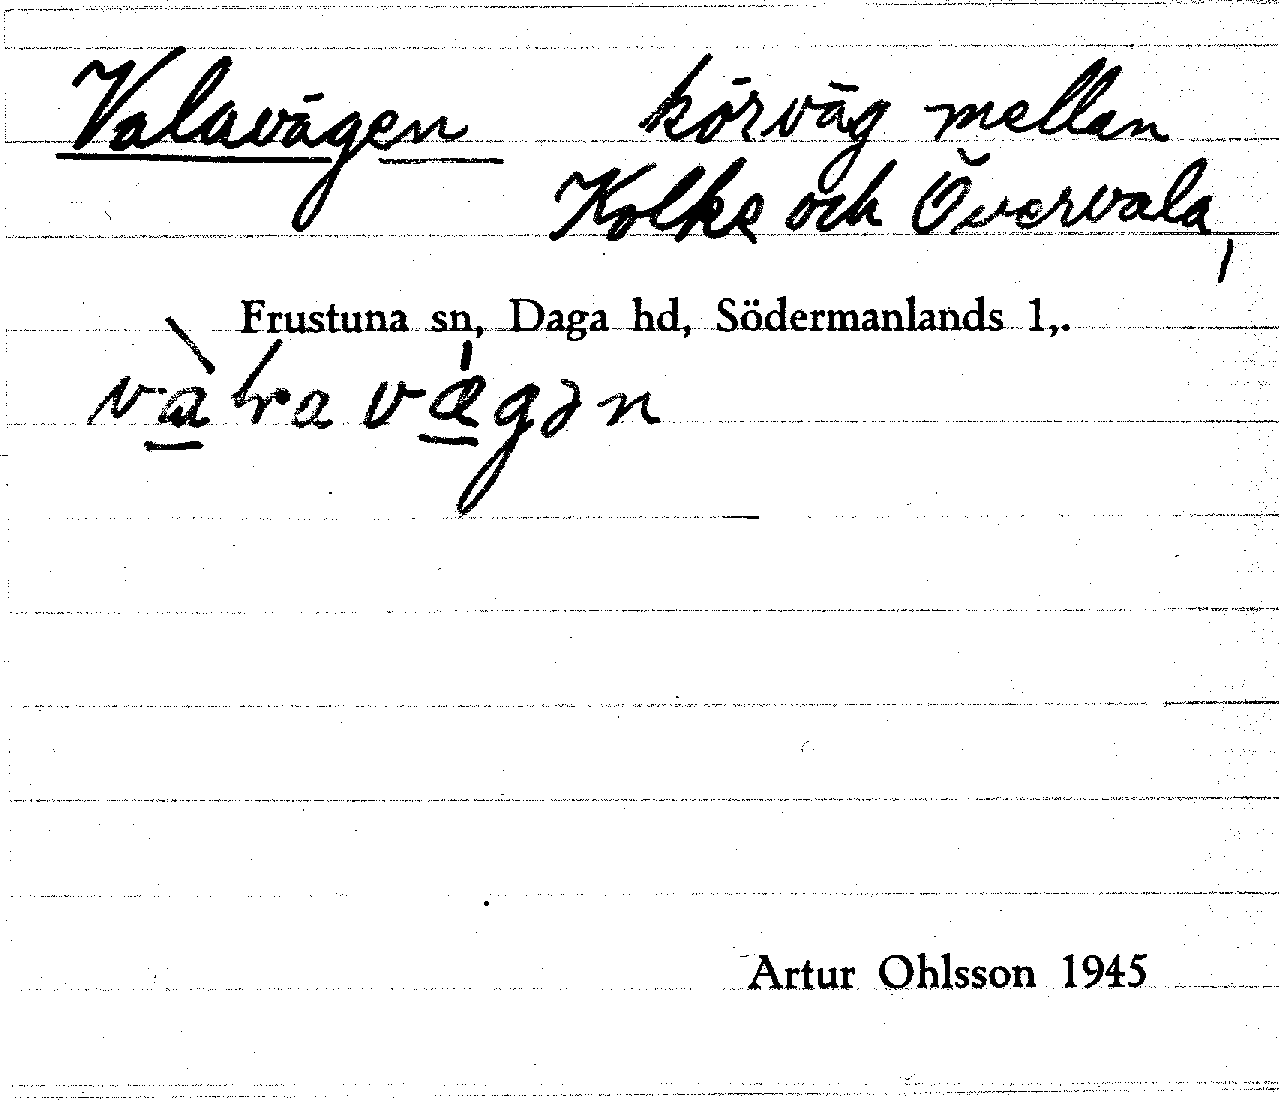 Valavägen körväg mellan
Kolke och Övervala,
Frustuna sn, Daga hd, Södermanlands l,.
Artur Ohlsson 1945